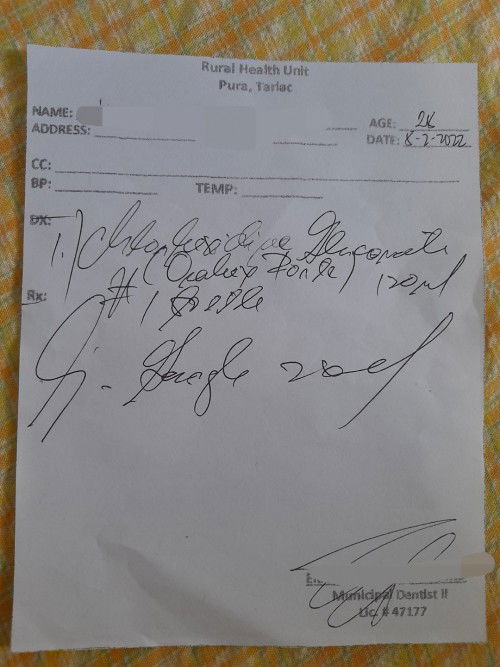 Rural Health Unit
Pura, Tarlac
NAME:
AGE: 24
ADDRESS:
DATE: 8-2-2022
CC:
BP: TEMP:
DX:
1.) Chlorhexidine Gluconate
(Orahex Forte) 120ml
Rx:
# 1 Bottle
Sig. Gargle
Municipal Dentist II
Lic. # 47177